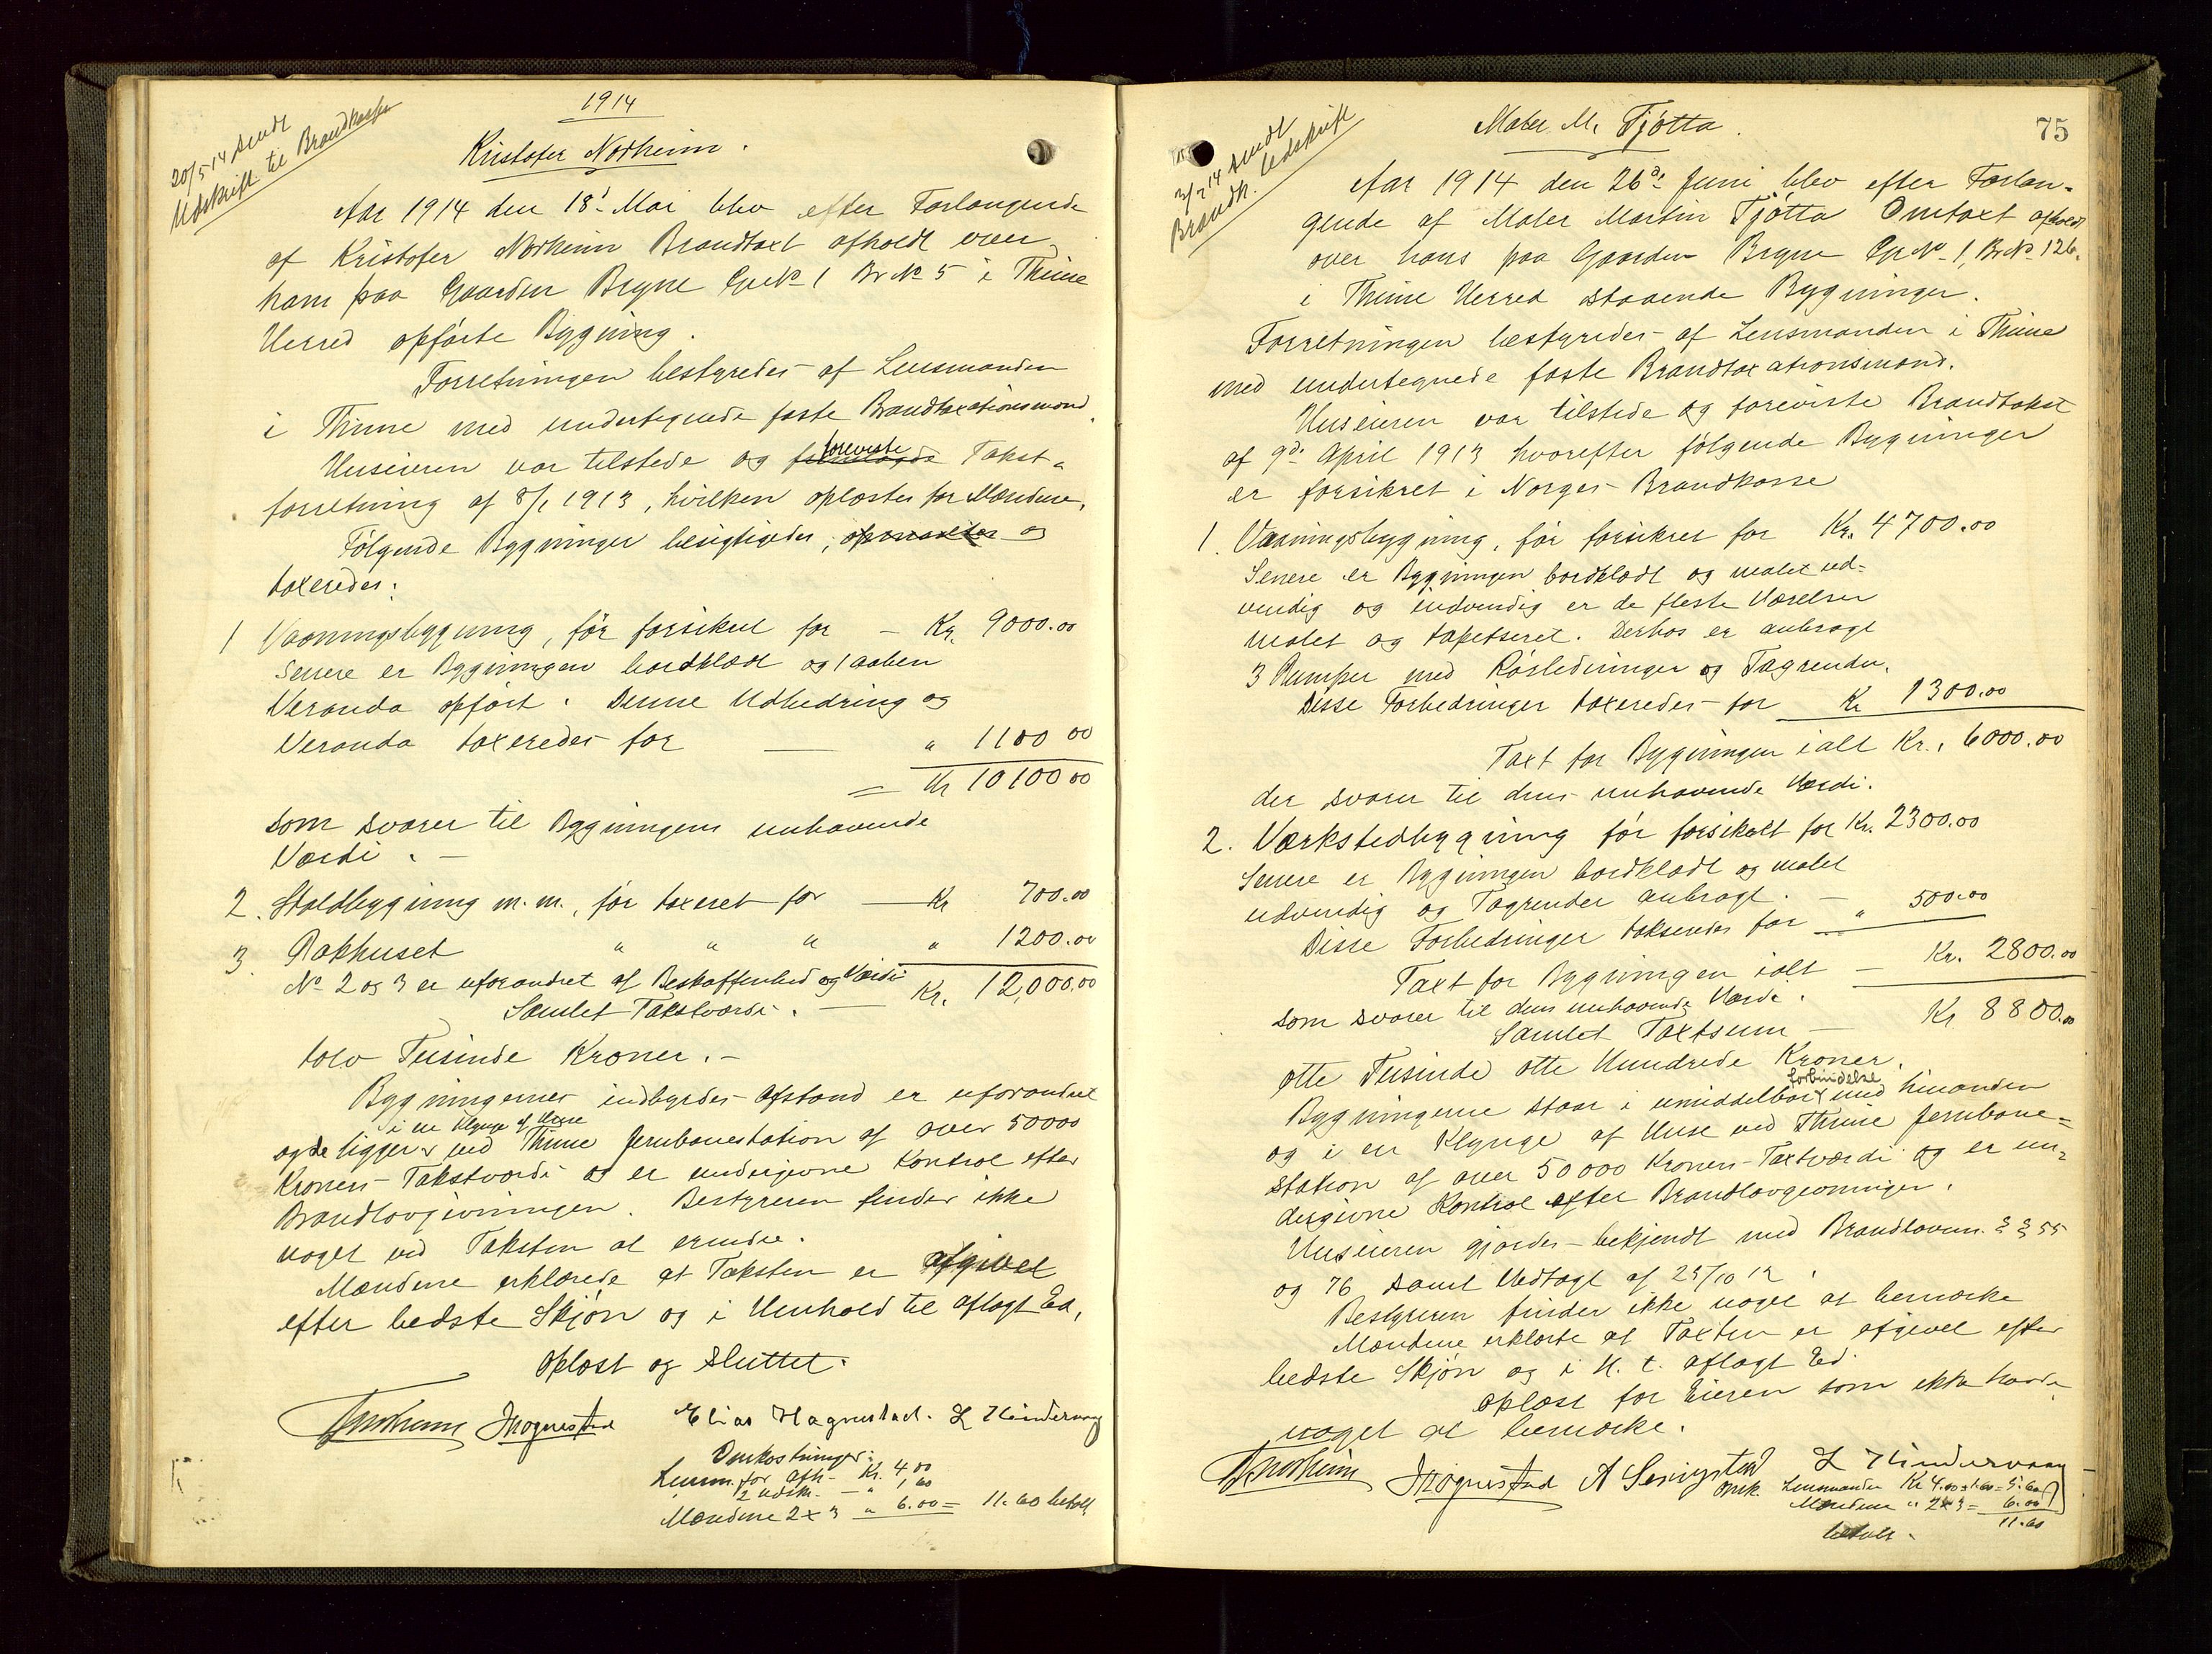 20/5 14 sendt
Udskrift til Brandkassen
1914
Kristofer Norheim.
Aar 1914 den 18d Mai blev efter Forlangende
af Kristofer Norheim Brandtaxt afholdt over
ham paa Gaarden Bryne Gr No 1 Br No 5 i Thime
Herred opførte Bygning.
Forretningen bestyredes af Lensmanden
i Thime med undertegnede faste Brandtaxationsmænd.
foreviste
Huseieren var tilstede og Takst-
forretning af 8/1 1913, hvilken oplæstes for Mændene.
Følgende Bygninger besigtigedes, opmaaltes og
taxeredes:
1 Vaaningsbygning, før forsikret for — Kr. 9000.00
Senere er Bygningen bordklædt og 1 aaben
Veranda opført. Denne Udbedring og
Veranda taxeredes for — " 1100 00
= Kr 10100 00
som svarer til Bygningens iboende
Værdi. —
2. Staldbygning m.m., før taxeret for — Kr 700.00
3. Bakhuset " " " " 1200.00
No 2 og 3 er uforandret af Beskaffenhed og Værdi
Samlet Takstværdi. — Kr. 12,000.00
tolv Tusinde Kroner. —
Bygningernes indbyrdes Afstand er uforandret
i en Klynge af Huse
og de ligger ved Thime Jernbanestation af over 50000
Kroners Takstværdi og er undergivne Kontrol efter
Brandlovgivningen. Bestyreren finder ikke
noget ved Taksten at erindre.
Mændene erklærede at Taksten er afgivet
efter bedste Skjøn og i Henhold til aflagt Ed,
Oplæst og sluttet.
Elias Hognestad. L Hindervaag
Omkostninger:
Lensm. for Afh — Kr. 4,00
2 Udskr. — " 1,60
Mændene 2 x 3 " 6.00 = 11.60 betalt
75
2/7 14 sendt
Brandk. Udskrift
Maler M. Tjøtta.
Aar 1914 den 26de Juni blev efter Forlan-
gende af Maler Martin Tjøtta Omtaxt afholdt
over hans paa Gaarden Bryne Gr No 1, Br No 126.
i Thime Herred staaende Bygninger.
Forretningen bestyredes af Lensmanden i Thime
med undertegnede faste Brandtaxationsmænd.
Huseieren var tilstede og foreviste Brandtakst
af 9de April 1913 hvorefter følgende Bygninger
er forsikret i Norges Brandkasse
1. Vaaningsbygning, før forsikret for Kr. 4700.00
Senere er Bygningen bordklædt og malet ud-
vendig og indvendig er de fleste Værelser
malet og tapetseret. Derhos er anbragt
3 Pumper med Rørledninger og Tagrender.
Disse Forbedringer taxeredes for Kr 1300.00
Taxt for Bygningen ialt Kr. 6000.00
der svarer til dens iboende Værdi.
2. Værkstedbygning før forsikret for Kr. 2300.00
Senere er Bygningen bordklædt og malet
udvendig og Tagrender anbragt. —
Disse Forbedringer takseredes for — " 500.00
Taxt for Bygningen ialt — Kr. 2800.00
som svarer til dens iboende Værdi.
Samlet Taxtsum — Kr 8800.00
otte Tusinde otte Hundrede Kroner.
forbindelse
Bygningerne staar i umiddelbar med hinanden
og i en Klynge af Huse ved Thime Jernbane-
station af over 50000 Kroners Taxtværdi og er un-
dergivne Kontrol efter Brandlovgivningen.
Huseieren gjordes bekjendt med Brandlovens §§ 55
og 76 samt Vedtægt af 25/10 12.
Bestyreren finder ikke noget at bemærke
Mændene erklærte at Taxten er afgivet efter
bedste Skjøn og i H. t. aflagt Ed.
Oplæst for Eieren som ikke havde
noget at bemærke.
L Hindervaag
Omk. Lensmanden Kr 4.00 + 1.60 = 5.60
Mændene " 2 x 3 = 6.00
11.60
betalt.